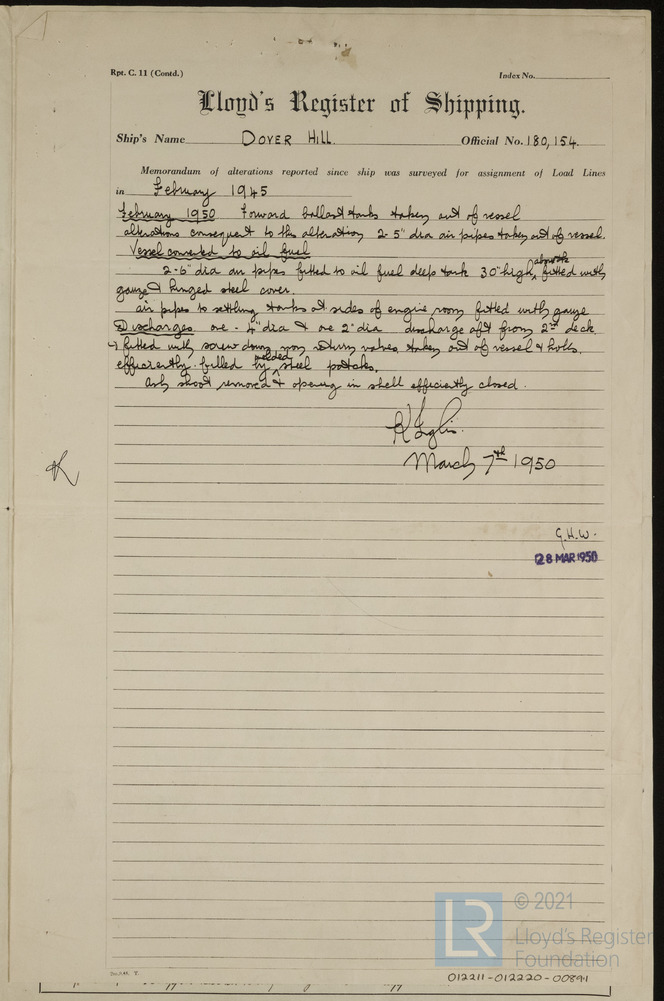 Rpt. C. 11 (Contd.)
Index No.
Lloyd's Register of Shipping.
Ship's Name DOVER HILL. Official No. 180,154.
Memorandum of alterations reported since ship was surveyed for assignment of Load Lines
in February 1945
February 1950 Forward ballast tanks taken out of vessel
alterations consequent to this alteration 2-5" dia air pipes taken out of vessel.
Vessel converted to oil fuel
2-6" dia air pipes fitted to oil fuel deep tank 30" high, fitted with
gauze & hinged steel cover.
air pipes to settling tanks at sides of engine room fitted with gauze
Discharges one - 4" dia & one 2" dia discharge aft from 2nd deck
& fitted with screw down non return valves, taken out of vessel & holes.
efficiently filled by welded steel patches.
Ash shoot removed & opening in shell efficiently closed.
March 7th 1950
G.H.W.
28 MAR 1950
© 2021
LR
Lloyd's Register
Foundation
012211-012220-0089-1